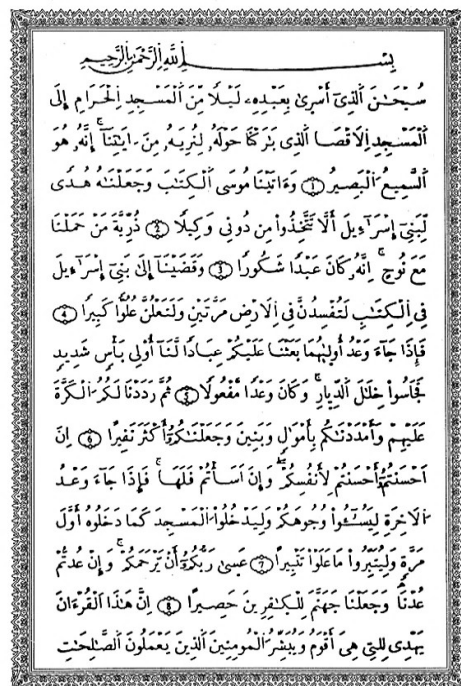 بِسْمِ اِ۬للَّهِ اِ۬لرَّحْمَٰنِ اِ۬لرَّحِيمِ
سُبْحَٰنَ اَ۬لذِےٓ أَسْر۪ىٰ بِعَبْدِهِۦ لَيْلًا مِّنَ اَ۬لْمَسْجِدِ اِ۬لْحَرَامِ إِلَى
اَ۬لْمَسْجِدِ اِ۬لَاقْصَا اَ۬لذِے بَٰرَكْنَا حَوْلَهُۥ لِنُرِيَهُۥ مِنَ ـ ايَٰتِنَآۖ إِنَّهُۥ هُوَ
اَ۬لسَّمِيعُ اُ۬لْبَصِيرُ ١ وَءَاتَيْنَا مُوسَى اَ۬لْكِتَٰبَ وَجَعَلْنَٰهُ هُدٗى
لِّبَنِےٓ إِسْرَآءِيلَ أَلَّا تَتَّخِذُواْ مِن دُونِے وَكِيلًا ٢ ذُرِّيَّةَ مَنْ حَمَلْنَا
مَعَ نُوحٍۖ اِنَّهُۥ كَانَ عَبْدًا شَكُورًا ٣ وَقَضَيْنَآ إِلَىٰ بَنِےٓ إِسْرَآءِيلَ
فِے اِ۬لْكِتَٰبِ لَتُفْسِدُنَّ فِے اِ۬لَارْضِ مَرَّتَيْنِ وَلَتَعْلُنَّ عُلُوًّا كَبِيرًا ٤
فَإِذَا جَآءَ وَعْدُ أُولَىٰهُمَا بَعَثْنَا عَلَيْكُمْ عِبَادًا لَّنَآ أُوْلِے بَأْسٍ شَدِيدٍ
فَجَاسُواْ خِلَٰلَ اَ۬لدِّيارِۖ وَكَانَ وَعْدًا مَّفْعُولًا ٥ ثُمَّ رَدَدْنَا لَكُمُ اُ۬لْكَرَّةَ
عَلَيْهِمْ وَأَمْدَدْنَٰكُم بِأَمْوَٰلٍ وَبَنِينَ وَجَعَلْنَٰكُمُۥٓ أَكْثَرَ نَفِيرًا ٦ اِنَ
اَحْسَنتُمُۥٓ أَحْسَنتُمْ لِأَنفُسِكُمْۖ وَإِنَ اَسَأْتُمْ فَلَهَاۖ فَإِذَا جَآءَ وَعْدُ
اُ۬لَاخِرَةِ لِيَسُـُٔواْ وُجُوهَكُمْ وَلِيَدْخُلُواْ اُ۬لْمَسْجِدَ كَمَا دَخَلُوهُ أَوَّلَ
مَرَّةٍ وَلِيُتَبِّرُواْ مَا عَلَوْاْ تَتْبِيرًا ٧ عَسَىٰ رَبُّكُمُۥٓ أَنْ يَّرْحَمَكُمْۖ وَإِنْ عُدتُّمْ
عُدْنَاۖ وَجَعَلْنَا جَهَنَّمَ لِلْكَٰفِرِينَ حَصِيرًا ٨ اِنَّ هَٰذَا اَ۬لْقُرْءَانَ
يَهْدِے لِلتِے هِيَ أَقْوَمُ وَيُبَشِّرُ اُ۬لْمُومِنِينَ اَ۬لذِينَ يَعْمَلُونَ اَ۬لصَّٰلِحَٰتِ